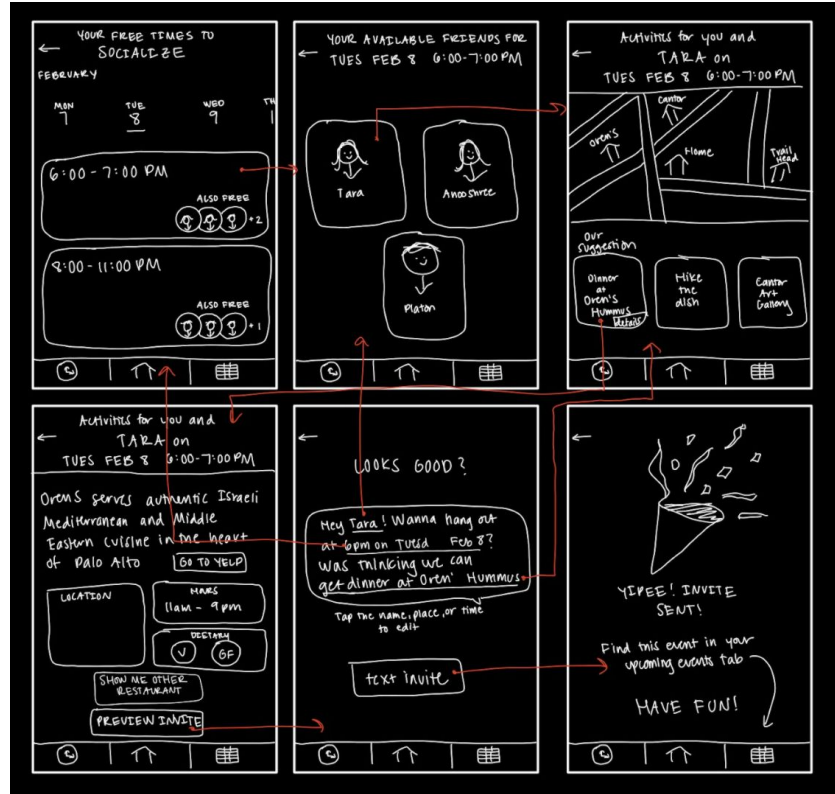 YOUR FREE TIMES TO
SOCIALIZE
FEBRUARY
MON TUE WED TH
7 8 9 1
6:00 - 7:00 PM
ALSO FREE
+2
8:00 - 11:00 PM
ALSO FREE
+1
YOUR AVAILABLE FRIENDS FOR
TUES FEB 8 6:00-7:00 PM
Tara
Anooshree
Platon
Activities for you and
TARA on
TUES FEB 8 6:00-7:00 PM
Cantor
Oren's
Home
Trail
Head
Our
suggestion
Dinner
at
Oren's
Hummus
Details
Hike
the
dish
Cantor
Art
Gallery
Activities for you and
TARA on
TUES FEB 8 6:00-7:00 PM
Orens serves authentic Israeli
Mediterranean and Middle
Eastern cuisine in the heart
of Palo Alto
GO TO YELP
LOCATION
HOURS
11am - 9pm
DIETARY
V GF
SHOW ME OTHER
RESTAURANT
PREVIEW INVITE
LOOKS GOOD?
Hey Tara! Wanna hang out
at 6pm on Tuesd Feb 8?
Was thinking we can
get dinner at Oren' Hummus
Tap the name, place, or time
to edit
text invite
YIPEE! INVITE
SENT!
Find this event in your
upcoming events tab
HAVE FUN!